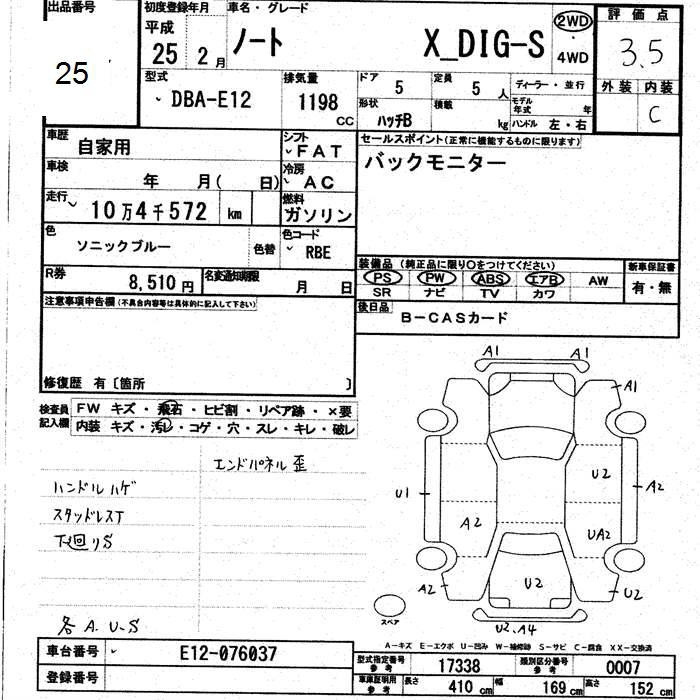 出品番号
25
初度登録年月
平成
25 2月
車名・グレード
ノート X_DIG-S
2WD
・
4WD
評価点
3.5
外装 内装
C
型式
DBA-E12
排気量
1198
CC
ドア
5
定員
5人
ディーラー・並行
形状
ハッチB
積載
kg
モデル年式 年
ハンドル 左・右
車歴
自家用
シフト
FAT
車検
年 月( 日)
冷房
AC
走行
10万4千572 km
燃料
ガソリン
色
ソニックブルー
色替
色コード
RBE
R券
8,510円
名変通知期限
月 日
セールスポイント(正常に機能するものに限ります)
バックモニター
装備品 (純正品に限り○をつけてください)
PS PW ABS エアB AW
SR ナビ TV カワ
新車保証書
有・無
後日品
B-CASカード
注意事項申告欄(不具合内容等は具体的に記入して下さい)
修復歴 有〔箇所 〕
検査員
記入欄
FW キズ・飛石・ヒビ割・リペア跡・×要
内装 キズ・汚レ・コゲ・穴・スレ・キレ・破レ
エンドパネル歪
ハンドルハゲ
スタッドレスT
下廻りS
各A.U-S
A1 A1
A1
U2
U1
A2
A2
UA2
A2
U2
U2
U2.A4
スペア
A-キズ E-エクボ U-凹み W-補修跡 S-サビ C-腐食 XX-交換済
車台番号
E12-076037
登録番号
型式指定番号
参考
17338
類別区分番号
参考
0007
車庫証明用
参考
長さ
410 cm
幅
169 cm
高さ
152 cm